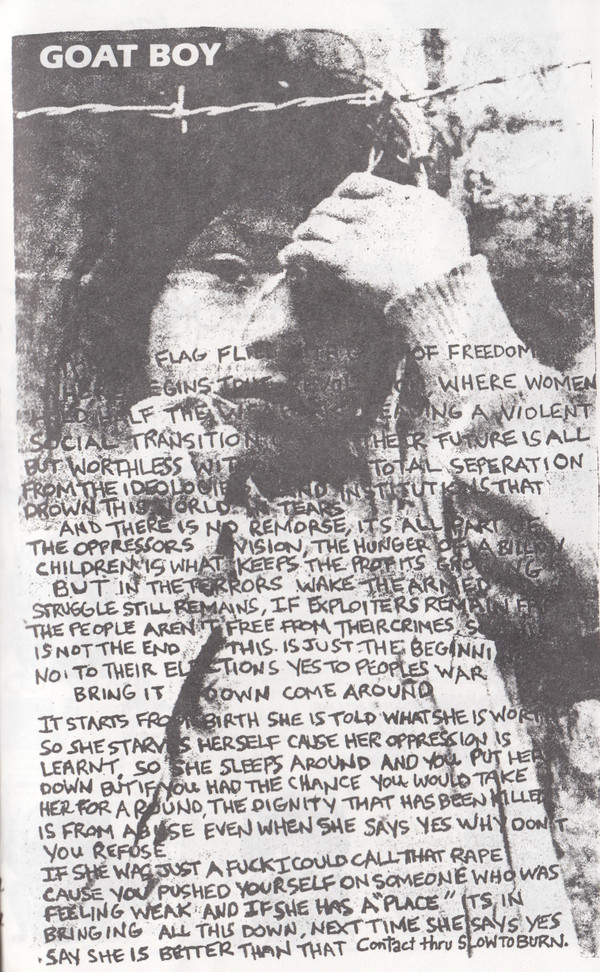 GOAT BOY
FLAG OF FREEDOM
WHERE WOMEN
HALF THE A VIOLENT
SOCIAL TRANSITION THEIR FUTURE IS ALL
BUT WORTHLESS TOTAL SEPERATION
FROM THE IDEOLOGIES AND INSTITUTIONS THAT
DROWN THIS WORLD IN TEARS
AND THERE IS NO REMORSE, IT'S ALL PART
THE OPPRESSORS VISION, THE HUNGER OF A BILLION
CHILDREN IS WHAT KEEPS THE PROFITS GROWING
BUT IN THE TERRORS WAKE THE ARMED
STRUGGLE STILL REMAINS, IF EXPLOITERS REMAIN
THE PEOPLE AREN'T FREE FROM THEIR CRIMES
IS NOT THE END THIS IS JUST THE BEGINNI
NO! TO THEIR ELECTIONS YES TO PEOPLES WAR
BRING IT DOWN COME AROUND
IT STARTS FROM BIRTH SHE IS TOLD WHAT SHE IS WORTH
SO SHE STARVES HERSELF CAUSE HER OPPRESSION IS
LEARNT, SO SHE SLEEPS AROUND AND YOU PUT HER
DOWN BUT IF YOU HAD THE CHANCE YOU WOULD TAKE
HER FOR A ROUND, THE DIGNITY THAT HAS BEEN KILLED
IS FROM ABUSE EVEN WHEN SHE SAYS YES WHY DON'T
YOU REFUSE
IF SHE WAS JUST A FUCK I COULD CALL THAT RAPE
CAUSE YOU PUSHED YOURSELF ON SOMEONE WHO WAS
FEELING WEAK AND IF SHE HAS A "PLACE" ITS IN
BRINGING ALL THIS DOWN, NEXT TIME SHE SAYS YES
SAY SHE IS BETTER THAN THAT Contact thru SLOW TO BURN.